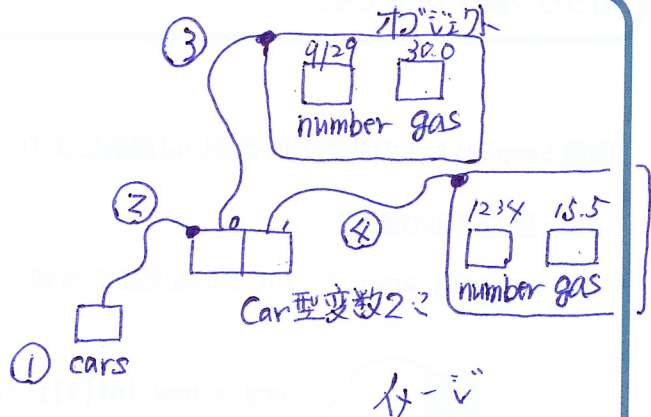 ③ オブジェクト
9129 30.0
number gas
② 0 1
④
1234 15.5
number gas
Car型変数2こ
① cars
イメージ